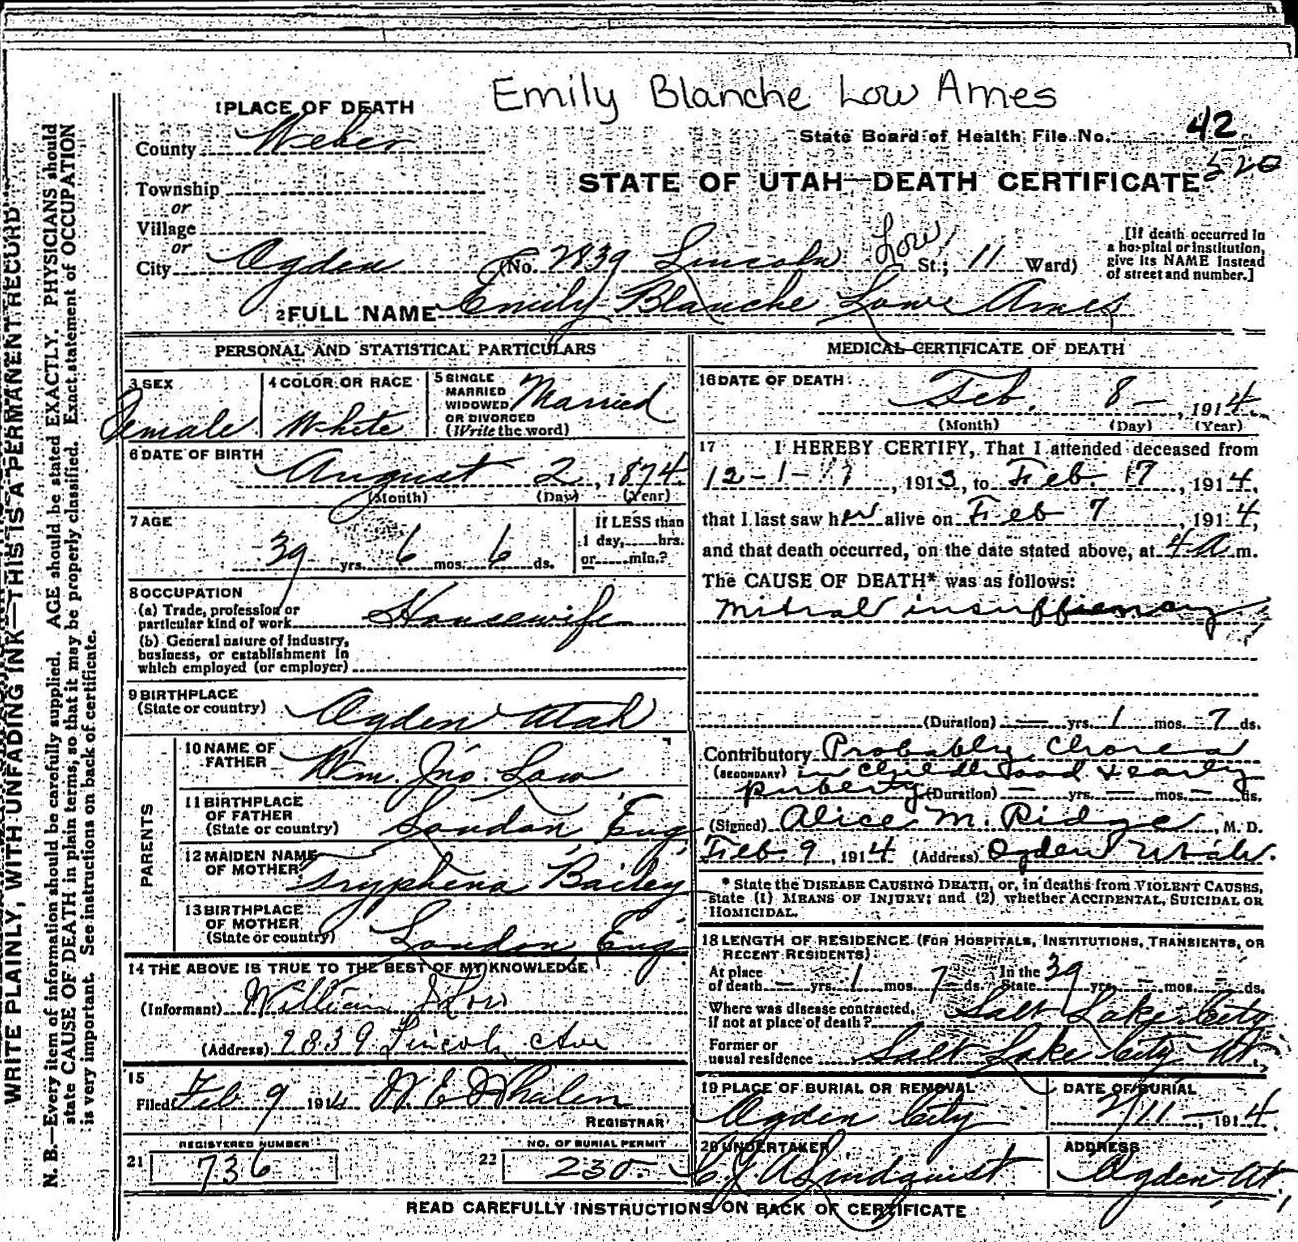 Emily Blanche Low Ames
1 PLACE OF DEATH
State Board of Health File No. 42
520
County Weber
STATE OF UTAH—DEATH CERTIFICATE
Township
or
Village
or
City Ogden (No. 2839 Lincoln St.; 11 Ward)
Low
[If death occurred in
a hospital or institution,
give its NAME instead
of street and number.]
2 FULL NAME Emily Blanche Lowe Ames
PERSONAL AND STATISTICAL PARTICULARS
3 SEX
Female
4 COLOR OR RACE
White
5 SINGLE
MARRIED
WIDOWED
OR DIVORCED
(Write the word)
Married
6 DATE OF BIRTH
August 2, 1874
(Month) (Day) (Year)
7 AGE
39 yrs. 6 mos. 6 ds.
If LESS than
1 day, hrs.
or min.?
8 OCCUPATION
(a) Trade, profession or
particular kind of work Housewife
(b) General nature of industry,
business, or establishment in
which employed (or employer)
9 BIRTHPLACE
(State or country) Ogden Utah
PARENTS
10 NAME OF
FATHER Wm. Jno. Low
11 BIRTHPLACE
OF FATHER
(State or country) London, Eng
12 MAIDEN NAME
OF MOTHER Tryphena Bailey
13 BIRTHPLACE
OF MOTHER
(State or country) London Eng
14 THE ABOVE IS TRUE TO THE BEST OF MY KNOWLEDGE
(Informant) William J Low
(Address) 2839 Lincoln Ave
15
Filed Feb 9 1914 W E Whalen
REGISTRAR
REGISTERED NUMBER
21 736
NO. OF BURIAL PERMIT
22 230
MEDICAL CERTIFICATE OF DEATH
16 DATE OF DEATH
Feb. 8 – , 1914
(Month) (Day) (Year)
17 I HEREBY CERTIFY, That I attended deceased from
12-1- , 1913, to Feb. 7, 1914,
that I last saw her alive on Feb 7, 1914,
and that death occurred, on the date stated above, at 4 a m.
The CAUSE OF DEATH* was as follows:
Mitral insufficiency
(Duration) — yrs. 1 mos. 7 ds.
Contributory Probably Chorea
(SECONDARY) in childhood & early
puberty (Duration) — yrs. — mos. — ds.
(Signed) Alice M. Ridge, M. D.
Feb. 9, 1914 (Address) Ogden Utah.
* State the DISEASE CAUSING DEATH, or, in deaths from VIOLENT CAUSES,
state (1) MEANS OF INJURY; and (2) whether ACCIDENTAL, SUICIDAL OR
HOMICIDAL.
18 LENGTH OF RESIDENCE (FOR HOSPITALS, INSTITUTIONS, TRANSIENTS, OR
RECENT RESIDENTS)
At place
of death — yrs. 1 mos. 7 ds. In the
State 39 yrs. – mos. – ds.
Where was disease contracted,
if not at place of death? Salt Lake City
Former or
usual residence Salt Lake City Ut.
19 PLACE OF BURIAL OR REMOVAL
Ogden City
DATE OF BURIAL
2/11 – 1914
20 UNDERTAKER
Lindquist
ADDRESS
Ogden, Ut.
READ CAREFULLY INSTRUCTIONS ON BACK OF CERTIFICATE
WRITE PLAINLY, WITH UNFADING INK—THIS IS A PERMANENT RECORD
N. B.—Every item of information should be carefully supplied. AGE should be stated EXACTLY. PHYSICIANS should
state CAUSE OF DEATH in plain terms, so that it may be properly classified. Exact statement of OCCUPATION
is very important. See instructions on back of certificate.